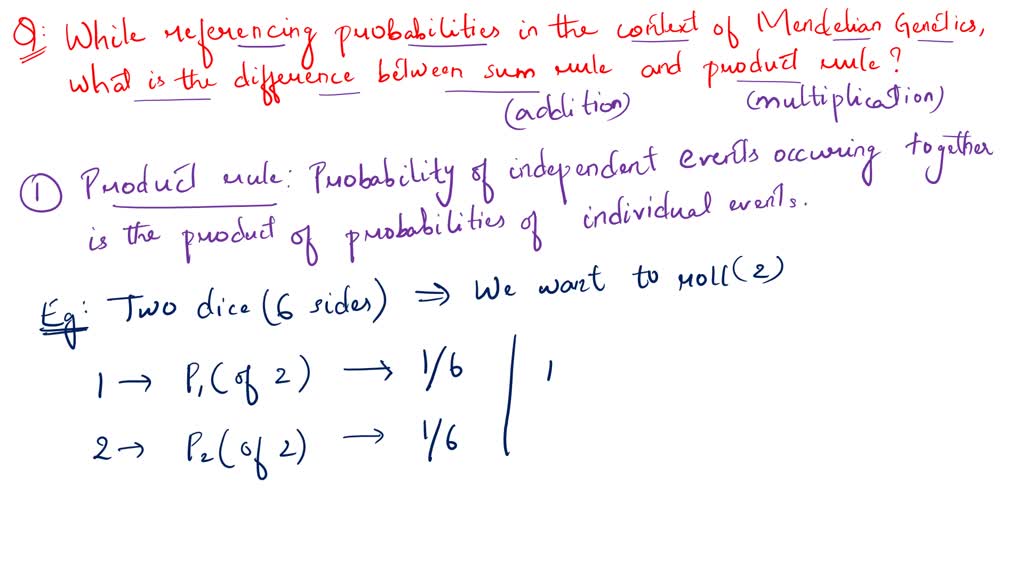 Q: While referencing probabilities in the context of Mendelian Genetics,
what is the difference between sum rule and product rule?
(addition) (multiplication)
1 Product rule: Probability of independent events occuring together
is the product of probabilities of individual events.
Eg: Two dice (6 sides) ⇒ We want to roll (2)
1 → P₁(of 2) → 1/6 | 1
2 → P₂(of 2) → 1/6